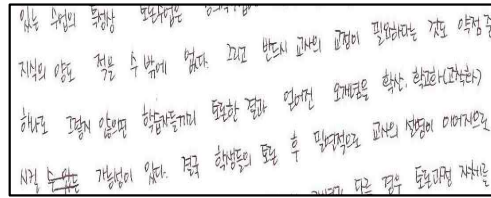 있는 수업의 특성상 토론수업은
지식의 양도 적을 수 밖에 없다. 그리고 반드시 교사의 교정이 필요하다는 것도 약점 중
하나로 그렇지 않으면 학습자들끼리 토론한 결과 얻어진 오개념을 확산, 학고화(고착화)
시킬 수 있는 가능성이 있다. 결국 학생들의 토론 후 필연적으로 교사의 설명이 이어지므로
다른 경우 토론과정 자체를